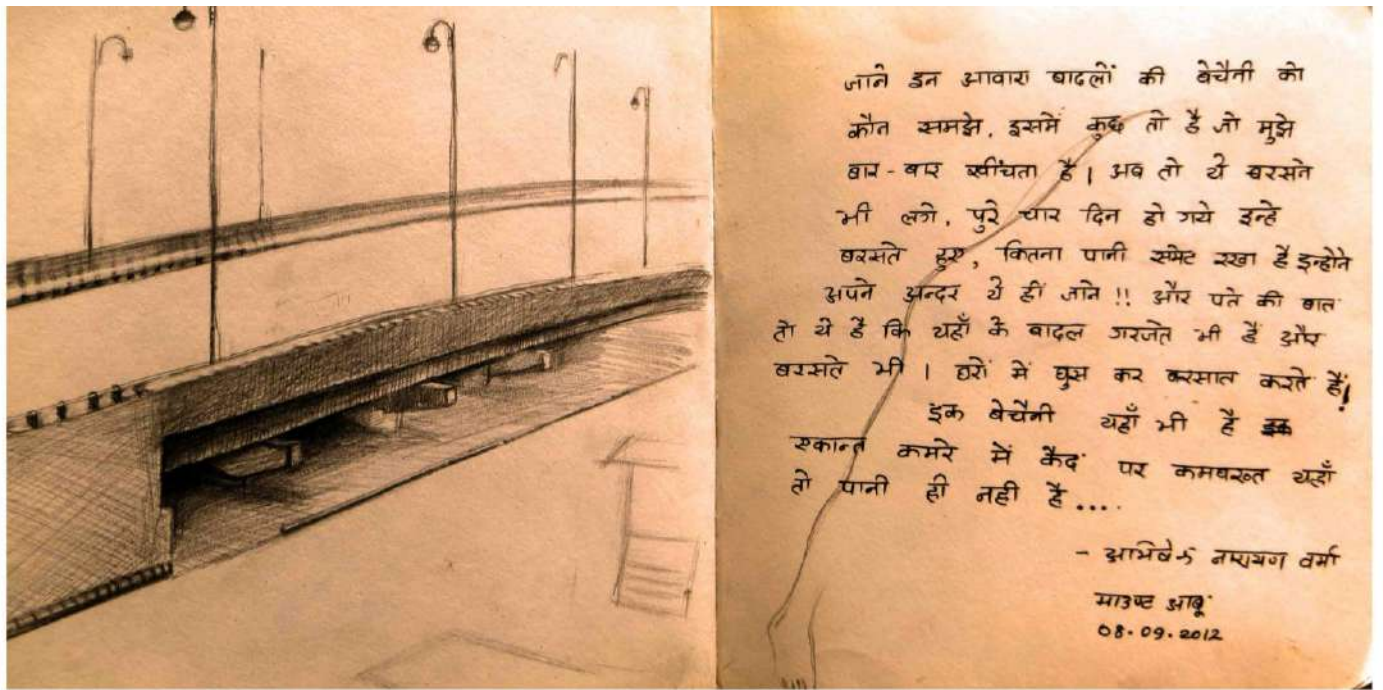 जाने इन आवारा बादलों की बेचैनी को
कौन समझे, इसमें कुछ तो है जो मुझे
बार-बार खींचता है। अब तो ये बरसने
भी लगे, पुरे चार दिन हो गये इन्हे
बरसते हुए, कितना पानी समेट रखा है इन्होने
अपने अन्दर ये हीं जाने !! और पते की बात
तो ये है कि यहाँ के बादल गरजते भी हैं और
बरसते भी । घरों में घुस कर बरसात करते हैं!
इक बेचैनी यहाँ भी है
एकान्त कमरे में कैद पर कमबख्त यहाँ
तो पानी ही नही है ....
- अभिषेक नारायण वर्मा
माउण्ट आबू
08.09.2012